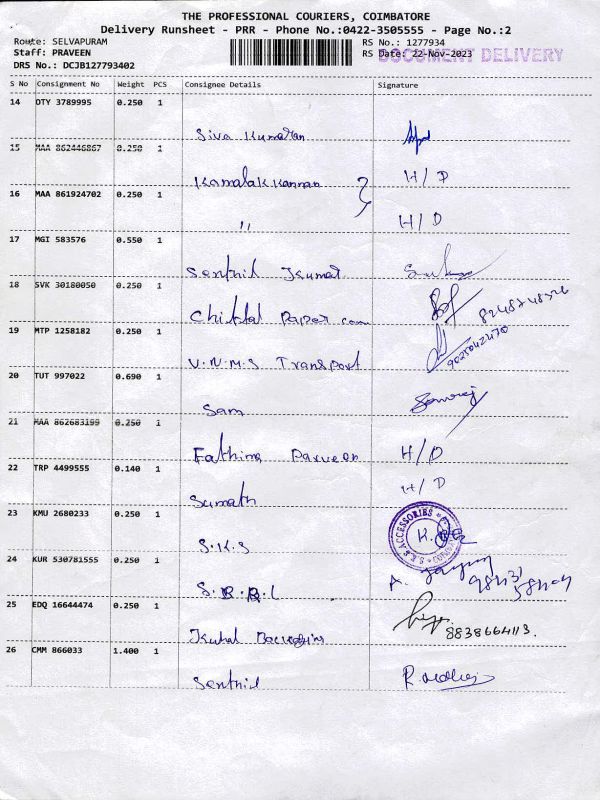 THE PROFESSIONAL COURIERS, COIMBATORE
Delivery Runsheet - PRR - Phone No.:0422-3505555 - Page No.:2
Route: SELVAPURAM
RS No.: 1277934
Staff: PRAVEEN
RS Date: 22-Nov-2023
DOCUMENT DELIVERY
DRS No.: DCJB127793402
S No Consignment No Weight PCS Consignee Details Signature
14 OTY 3789995 0.250 1
Siva Kumaran
15 MAA 862446867 0.250 1
Kamalakkannan H/D
16 MAA 861924702 0.250 1
" H/D
17 MGI 583576 0.550 1
Senthil Kumar
18 SVK 30180050 0.250 1
Paper com
19 MTP 1258182 0.250 1
V.N.M.S Transport
20 TUT 997022 0.690 1
Sam
21 MAA 862683199 0.250 1
Fathima Parveen H/D
22 TRP 4499555 0.140 1
Sumath H/D
23 KMU 2680233 0.250 1
S.K.S
ACCESSORIES
24 KUR 530781555 0.250 1
S.B.B.L
25 EDQ 16644474 0.250 1
8838664113.
26 CMM 866033 1.400 1
Senthil